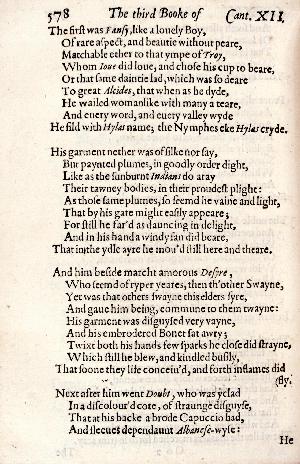 578 The third Booke of Cant. XII.
The first was Fansy, like a louely Boy,
Of rare aspect, and beautie without peare,
Matchable ether to that ympe of Troy,
Whom Ioue did loue, and chose his cup to beare,
Or that same daintie lad, which was so deare
To great Alcides, that when as he dyde,
He wailed womanlike with many a teare,
And euery word, and euery valley wyde
He fild with Hylas name; the Nymphes eke Hylas cryde.
His garment nether was of silke nor say,
But paynted plumes, in goodly order dight,
Like as the sunburnt Indians do aray
Their tawney bodies, in their proudest plight:
As those same plumes, so seemd he vaine and light,
That by his gate might easily appeare;
For still he far'd as dauncing in delight,
And in his hand a windy fan did beare,
That in the ydle ayre he mou'd still here and theare.
And him beside marcht amorous Desyre,
Who seemd of ryper yeares, then th'other Swayne,
Yet was that others swayne this elders syre,
And gaue him being, commune to them twayne:
His garment was disguysed very vayne,
And his embrodered Bonet sat awry;
Twixt both his hands few sparks he close did strayne,
Which still he blew, and kindled busily,
That soone they life conceiu'd, and forth in flames did
(fly.
Next after him went Doubt, who was yclad
In a discolour'd cote, of straunge disguyse,
That at his backe a brode Capuccio had,
And sleeues dependaunt Albanese-wyse:
He